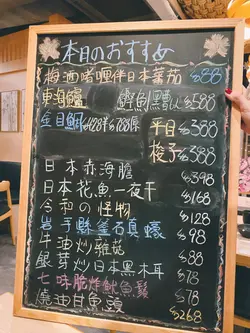 本日のおすすめ
梅酒啫喱伴日本蕃茄 $88
東海鱸 $588
金目鯛 平目 $388
梭子 $388
日本赤海膽 $398
日本花魚一夜干 $168
令和の怪物 $128
岩手縣釜石真蠔 $98
牛油炒雜菇 $88
銀芽炒日本黑木耳 $78
七味脆炸魷魚鬚 $78
燒油甘魚頭 $268